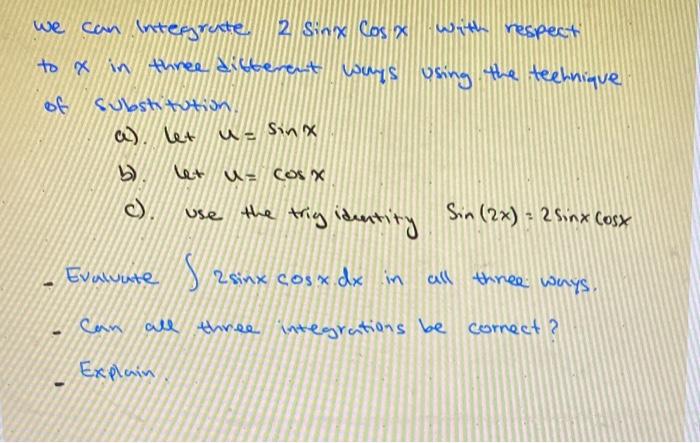 we can Integrate 2 Sinx Cos x with respect
to x in three different ways using the technique
of substitution.
a). let u = sin x
b). let u = cos x
c). use the trig identity Sin (2x) = 2 Sinx Cosx
- Evaluate ∫ 2 sinx cos x. dx in all three ways.
- Can all three integrations be correct?
- Explain.